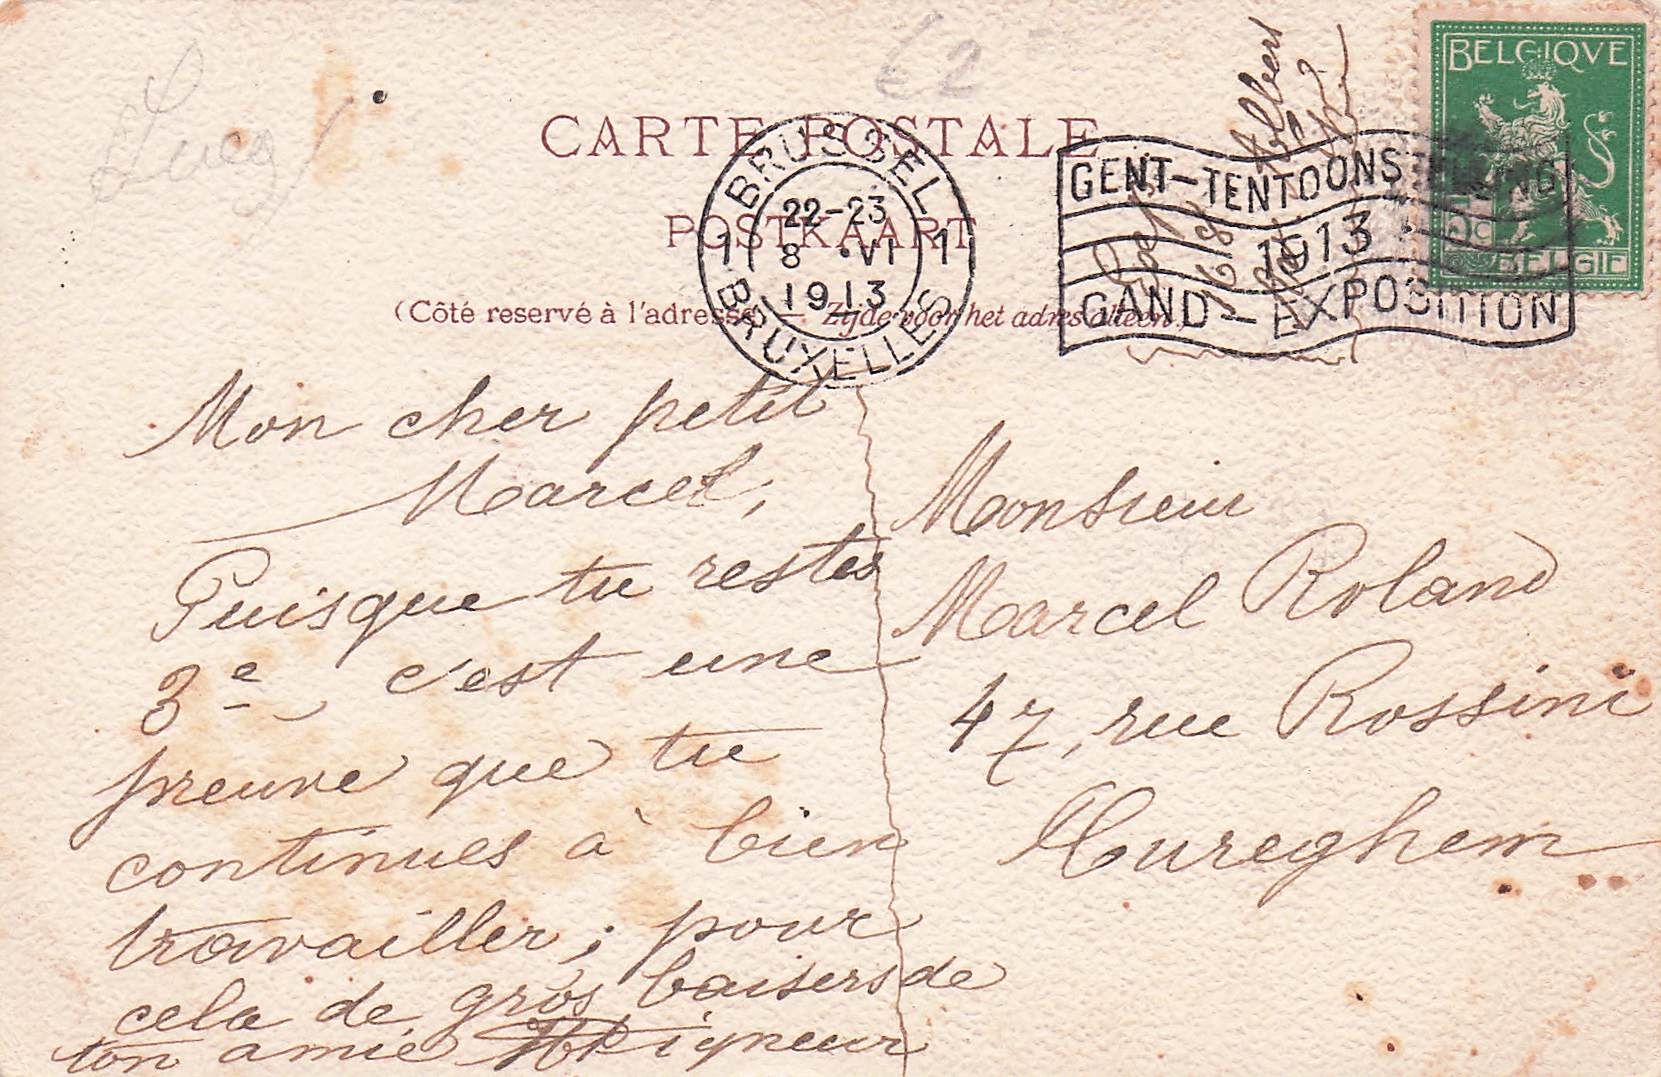 €2
CARTE POSTALE
POSTKAART
(Côté reservé à l'adresse — Zijde voor het adres alleen.)
BRUSSEL
1 22-23 1
8 · VI
1913
BRUXELLES
GENT-TENTOONSTELLING
1913
GAND-EXPOSITION
BELGIQVE
5c
BELGIË
Albert
Mon cher petit
Marcel,
Puisque tu restes
3e, c'est une
preuve que tu
continues à bien
travailler; pour
cela de gros baisers de
ton amie
Monsieur
Marcel Roland
47, rue Rossini
Cureghem